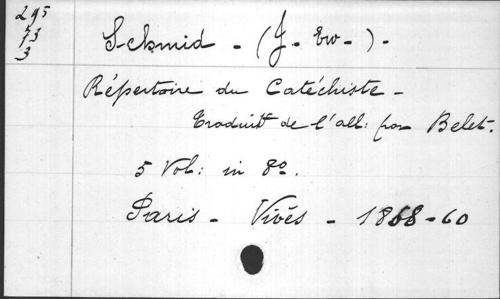 295
73
3
Schmid - (J. Ew - ) -
Répertoire du Catéchiste -
Traduit de l'all: par Belet.
5 Vol: in 8º.
Paris - Vivès - 1868-60